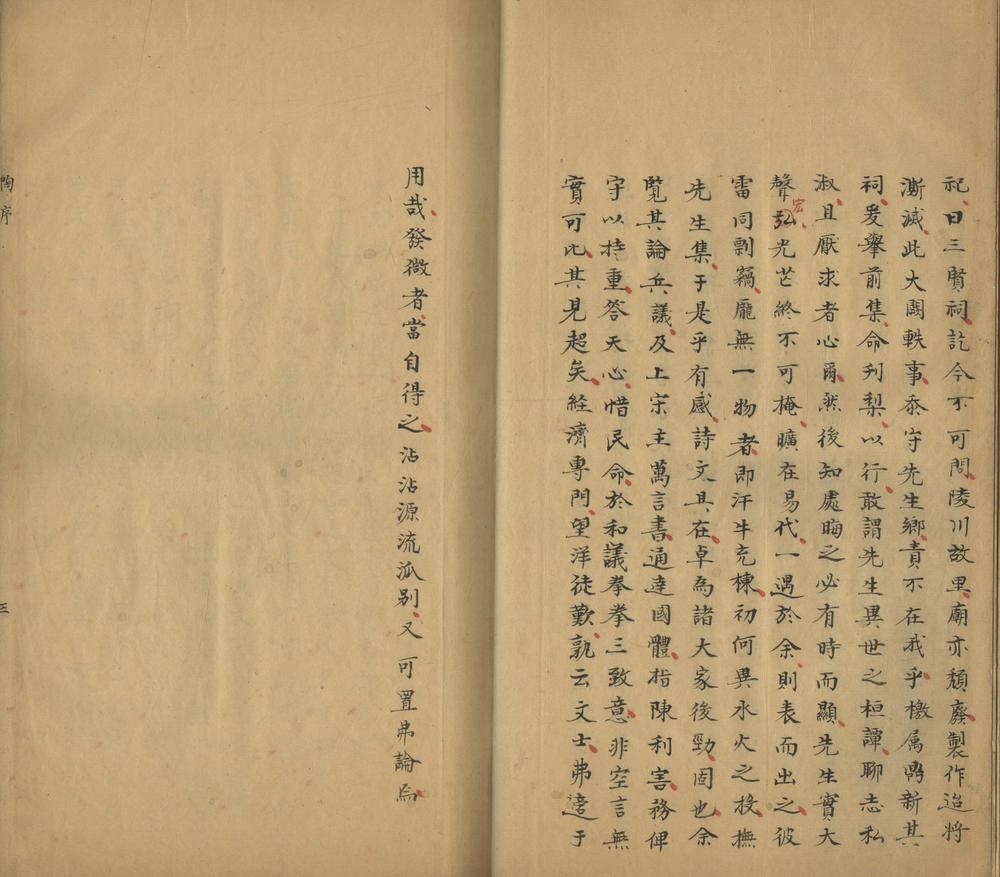 祀曰三賢祠訖今不可問陵川故里廟亦頽廢製作迨將
澌滅此大闕軼事忝守先生鄉責不在我乎檄属鼎新其
祠爰舉前集命刋梨以行敢謂先生異世之桓譚聊志私
淑且厭求者心爾然後知處晦之必有時而顯先生實大
聲弘光芒終不可掩曠在易代一遇於余則表而出之彼
宏
雷同剽竊龎無一物者即汗牛充棟初何異水火之投撫
先生集于是乎有感詩文具在卓為諸大家後勁固也余
覽其論兵議及上宋主萬言書通達國體指陳利害務俾
守以持重答天心惜民命於和議拳拳三致意非空言無
實可比其見超矣經濟專門望洋徒歎孰云文士弗適于
用哉發微者當自得之沾沾源流派别又可置弗論焉
陶序
三